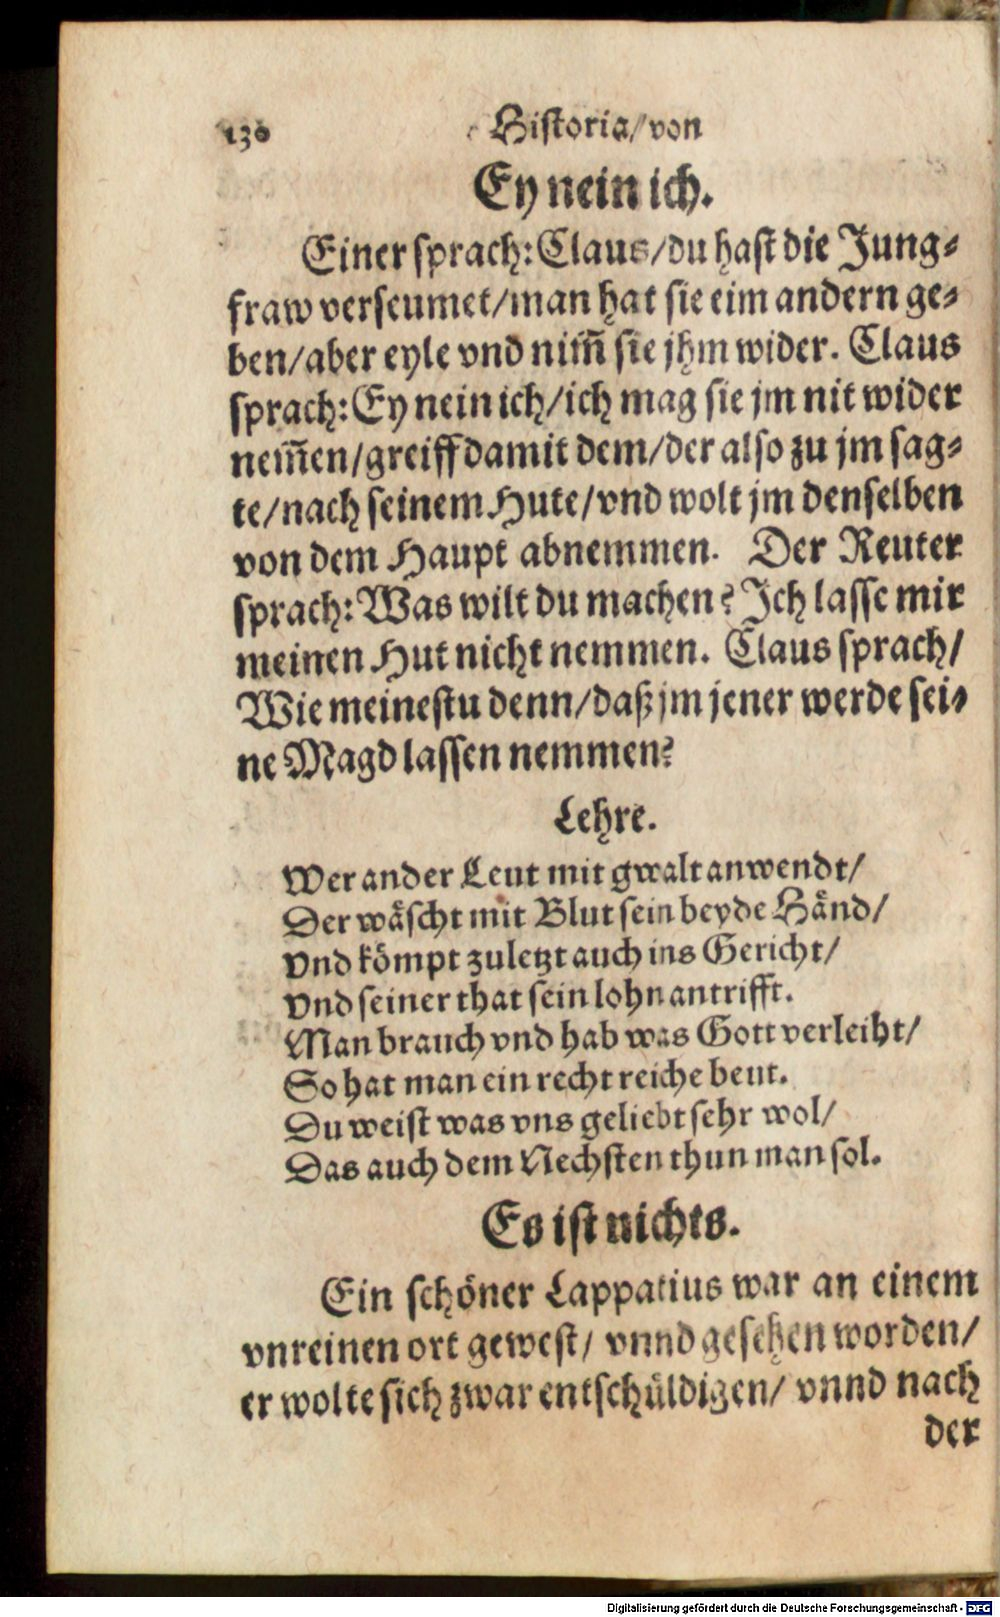 130 Historia/ von
Ey nein ich.
Einer sprach: Claus/ du hast die Jung-
fraw verseumet/ man hat sie eim andern ge-
ben/ aber eyle vnd nim̃ sie jhm wider. Claus
sprach: Ey nein ich/ ich mag sie jm nit wider
nem̃en/ greiff damit dem/ der also zu jm sag-
te/ nach seinem Hute/ vnd wolt jm denselben
von dem Haupt abnemmen. Der Reuter
sprach: Was wilt du machen? Ich lasse mir
meinen Hut nicht nemmen. Claus sprach/
Wie meinestu denn/ daß jm jener werde sei-
ne Magd lassen nemmen?
Lehre.
Wer ander Leut mit gwalt anwendt/
Der wäscht mit Blut sein beyde Händ/
Vnd kömpt zuletzt auch ins Gericht/
Vnd seiner that sein lohn antrifft.
Man brauch vnd hab was Gott verleiht/
So hat man ein recht reiche beut.
Du weist was vns geliebt sehr wol/
Das auch dem Nechsten thun man sol.
Es ist nichts.
Ein schöner Lappatius war an einem
vnreinen ort gewest/ vnnd gesehen worden/
er wolte sich zwar entschüldigen/ vnnd nach
der
Digitalisierung gefördert durch die Deutsche Forschungsgemeinschaft - DFG